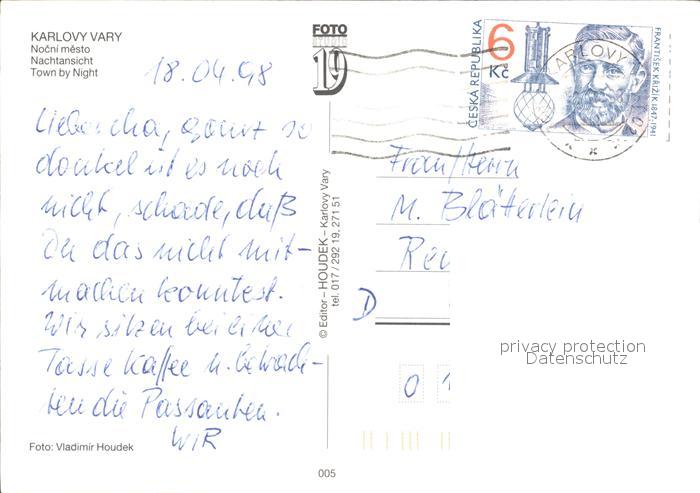 KARLOVY VARY
Noční město
Nachtansicht
Town by Night
18.04.98
Lieber cha, ganz so
dunkel ist es noch
nicht, schade, daß
Du das nicht mit-
machen konntest.
Wir sitzen bei einer
Tasse Kaffee u. betrach-
ten die Passanten.
WIR
Foto: Vladimír Houdek
005
FOTO
19
© Editor – HOUDEK – Karlovy Vary
tel. 017 / 292 19, 271 51
ČESKÁ REPUBLIKA
6 Kč
FRANTIŠEK KŘIŽÍK 1847-1941
KARLOVY
Frau/Herrn
M. Blätterlein
D
0 1
privacy protection
Datenschutz